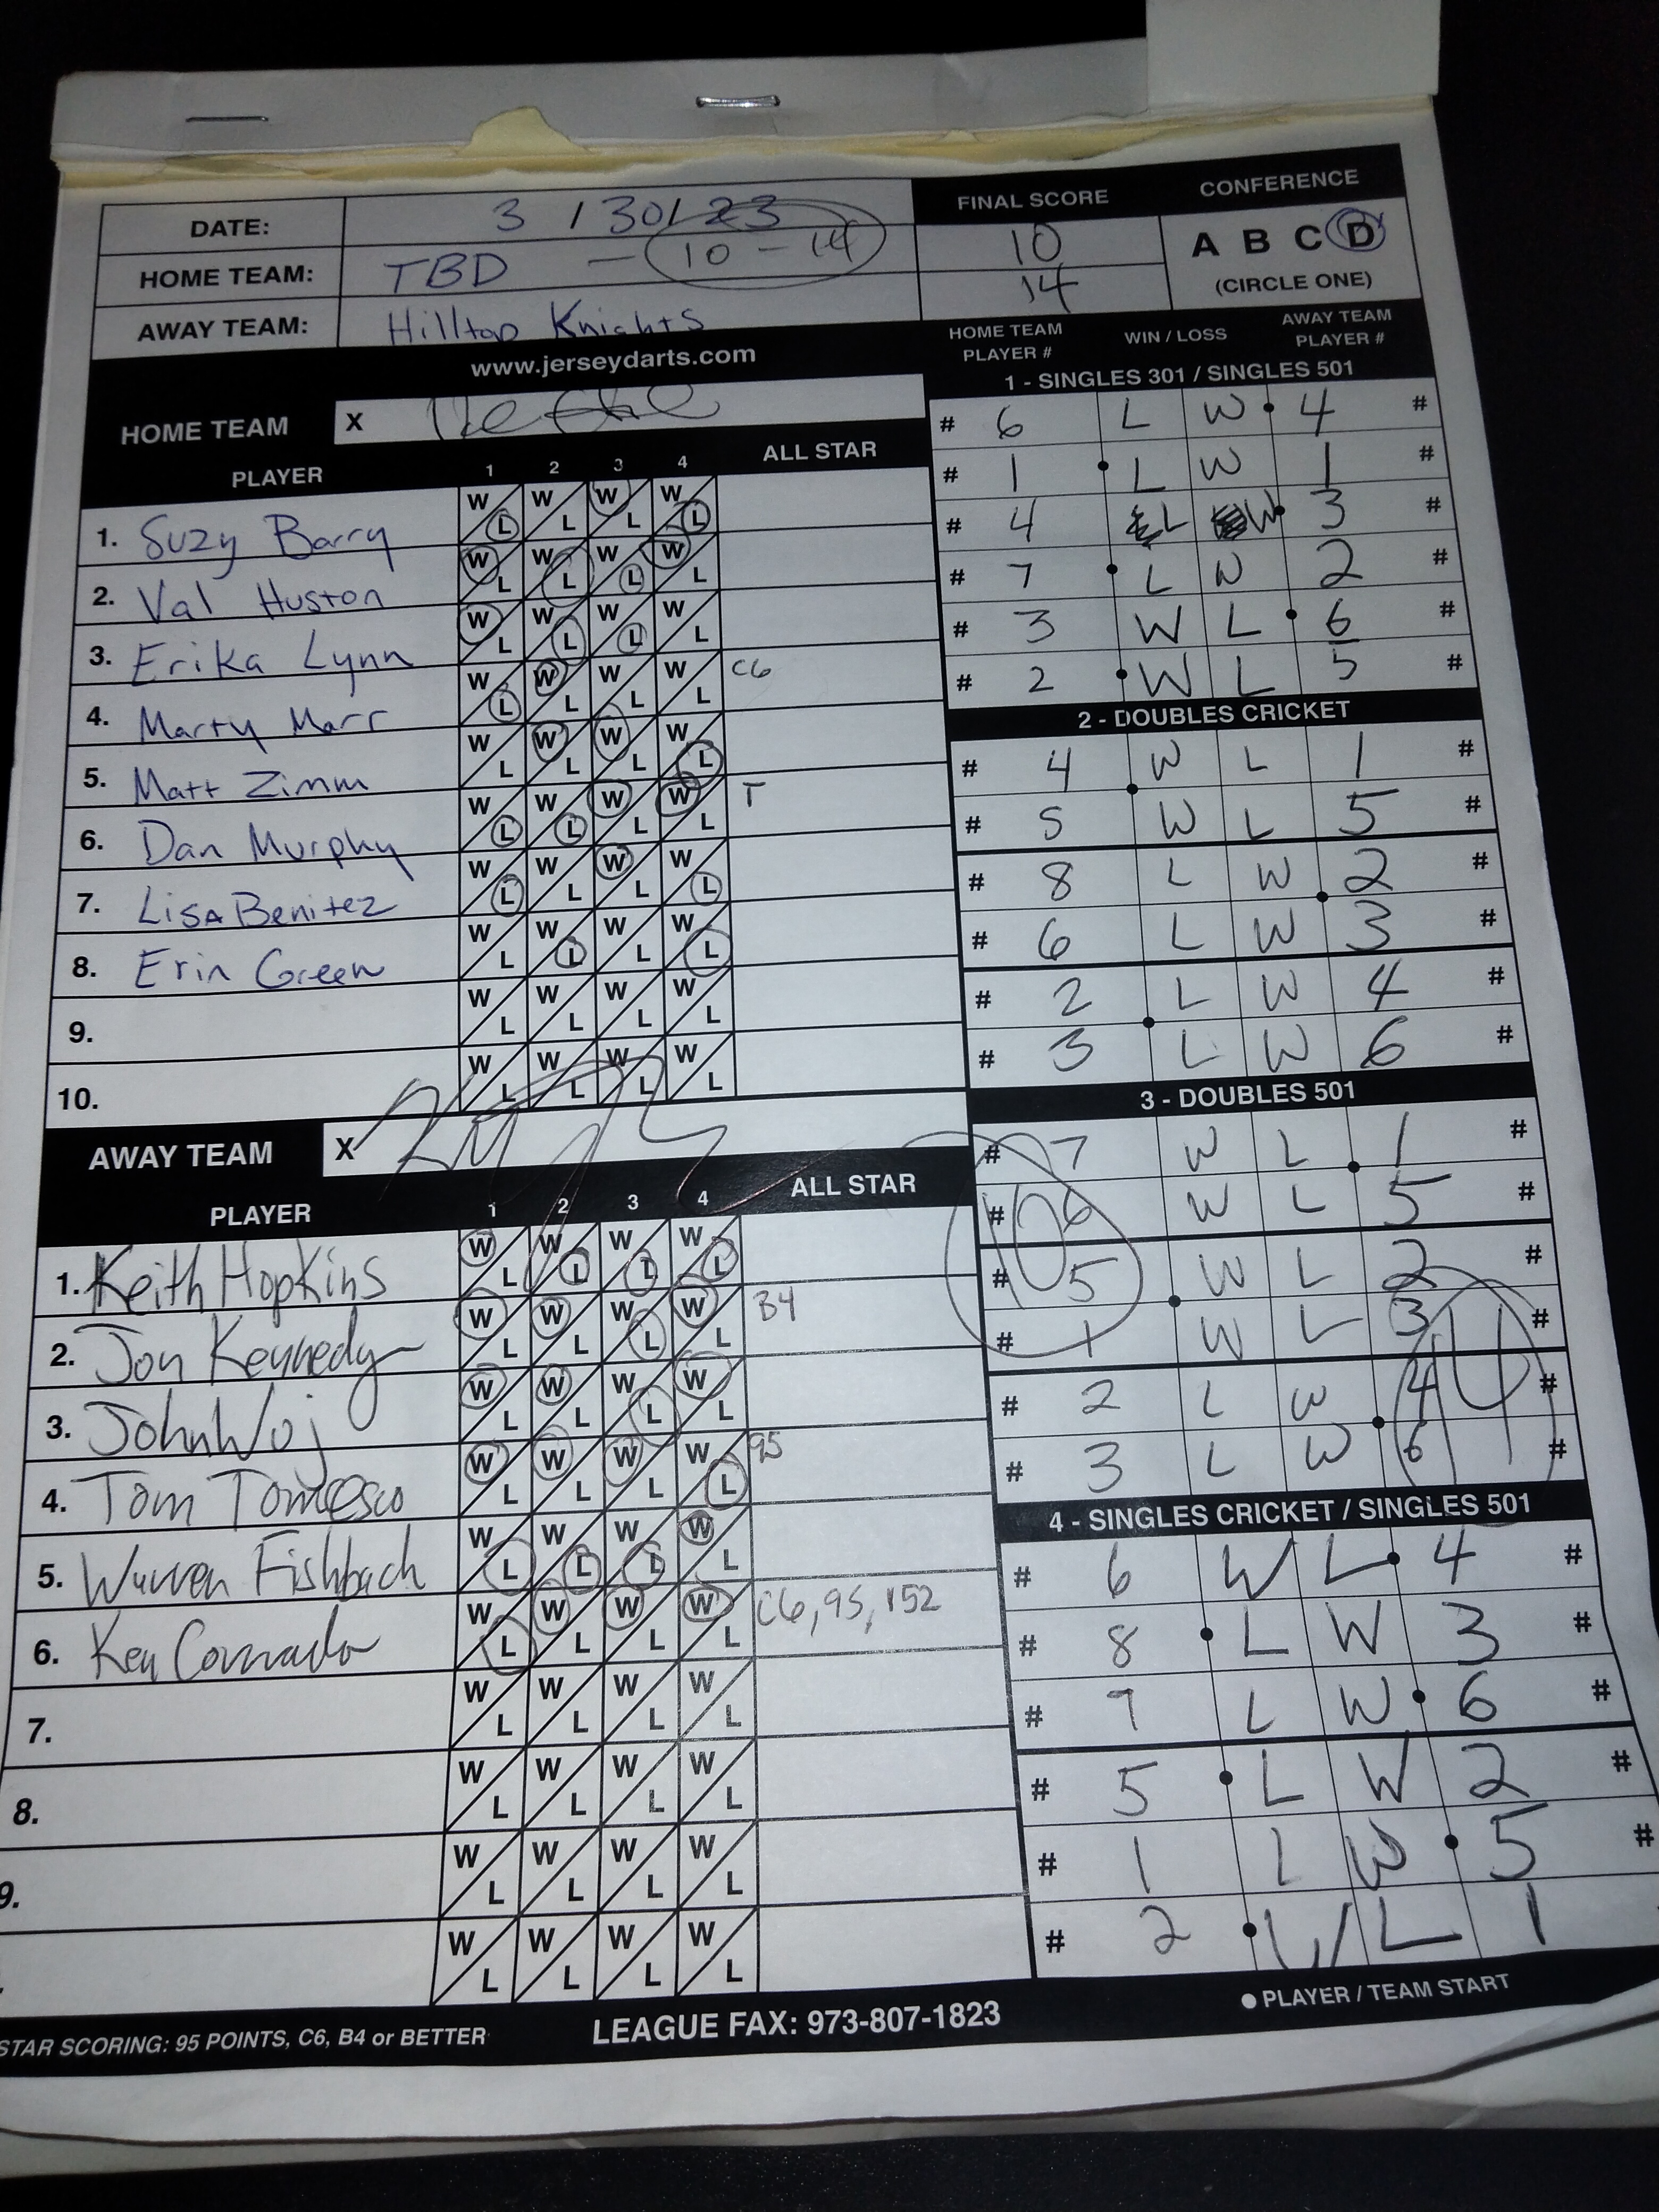 DATE: 3 / 30 / 23
HOME TEAM: TBD — 10 - 14
AWAY TEAM: Hilltop Knights
FINAL SCORE
10
14
CONFERENCE
A B C D
(CIRCLE ONE)
www.jerseydarts.com
HOME TEAM X
PLAYER 1 2 3 4 ALL STAR
1. Suzy Barry W L W L W L W L
2. Val Huston W L W L W L W L
3. Erika Lynn W L W L W L W L
4. Marty Marr W L W L W L W L C6
5. Matt Zimm W L W L W L W L
6. Dan Murphy W L W L W L W L T
7. Lisa Benitez W L W L W L W L
8. Erin Green W L W L W L W L
9. W L W L W L W L
10. W L W L W L W L
AWAY TEAM X
PLAYER 1 2 3 4 ALL STAR
1. Keith Hopkins W L W L W L W L
2. Jon Kennedy W L W L W L W L B4
3. John Woj W L W L W L W L
4. Tom Tomesco W L W L W L W L 95
5. Warren Fishbach W L W L W L W L
6. Ken W L W L W L W L C6, 95, 152
7. W L W L W L W L
8. W L W L W L W L
9. W L W L W L W L
W L W L W L W L
HOME TEAM PLAYER # WIN / LOSS AWAY TEAM PLAYER #
1 - SINGLES 301 / SINGLES 501
# 6 L W 4 #
# 1 L W 1 #
# 4 L W 3 #
# 7 L W 2 #
# 3 W L 6 #
# 2 W L 5 #
2 - DOUBLES CRICKET
# 4 W L 1 #
# 5 W L 5 #
# 8 L W 2 #
# 6 L W 3 #
# 2 L W 4 #
# 3 L W 6 #
3 - DOUBLES 501
# 7 W L 1 #
# 6 W L 5 #
# 5 W L 2 #
# 1 W L 3 #
# 2 L W 4 #
# 3 L W 6 #
10
14
4 - SINGLES CRICKET / SINGLES 501
# 6 W L 4 #
# 8 L W 3 #
# 7 L W 6 #
# 5 L W 2 #
# 1 L W 5 #
# 2 W L 1
STAR SCORING: 95 POINTS, C6, B4 or BETTER
LEAGUE FAX: 973-807-1823
PLAYER / TEAM START